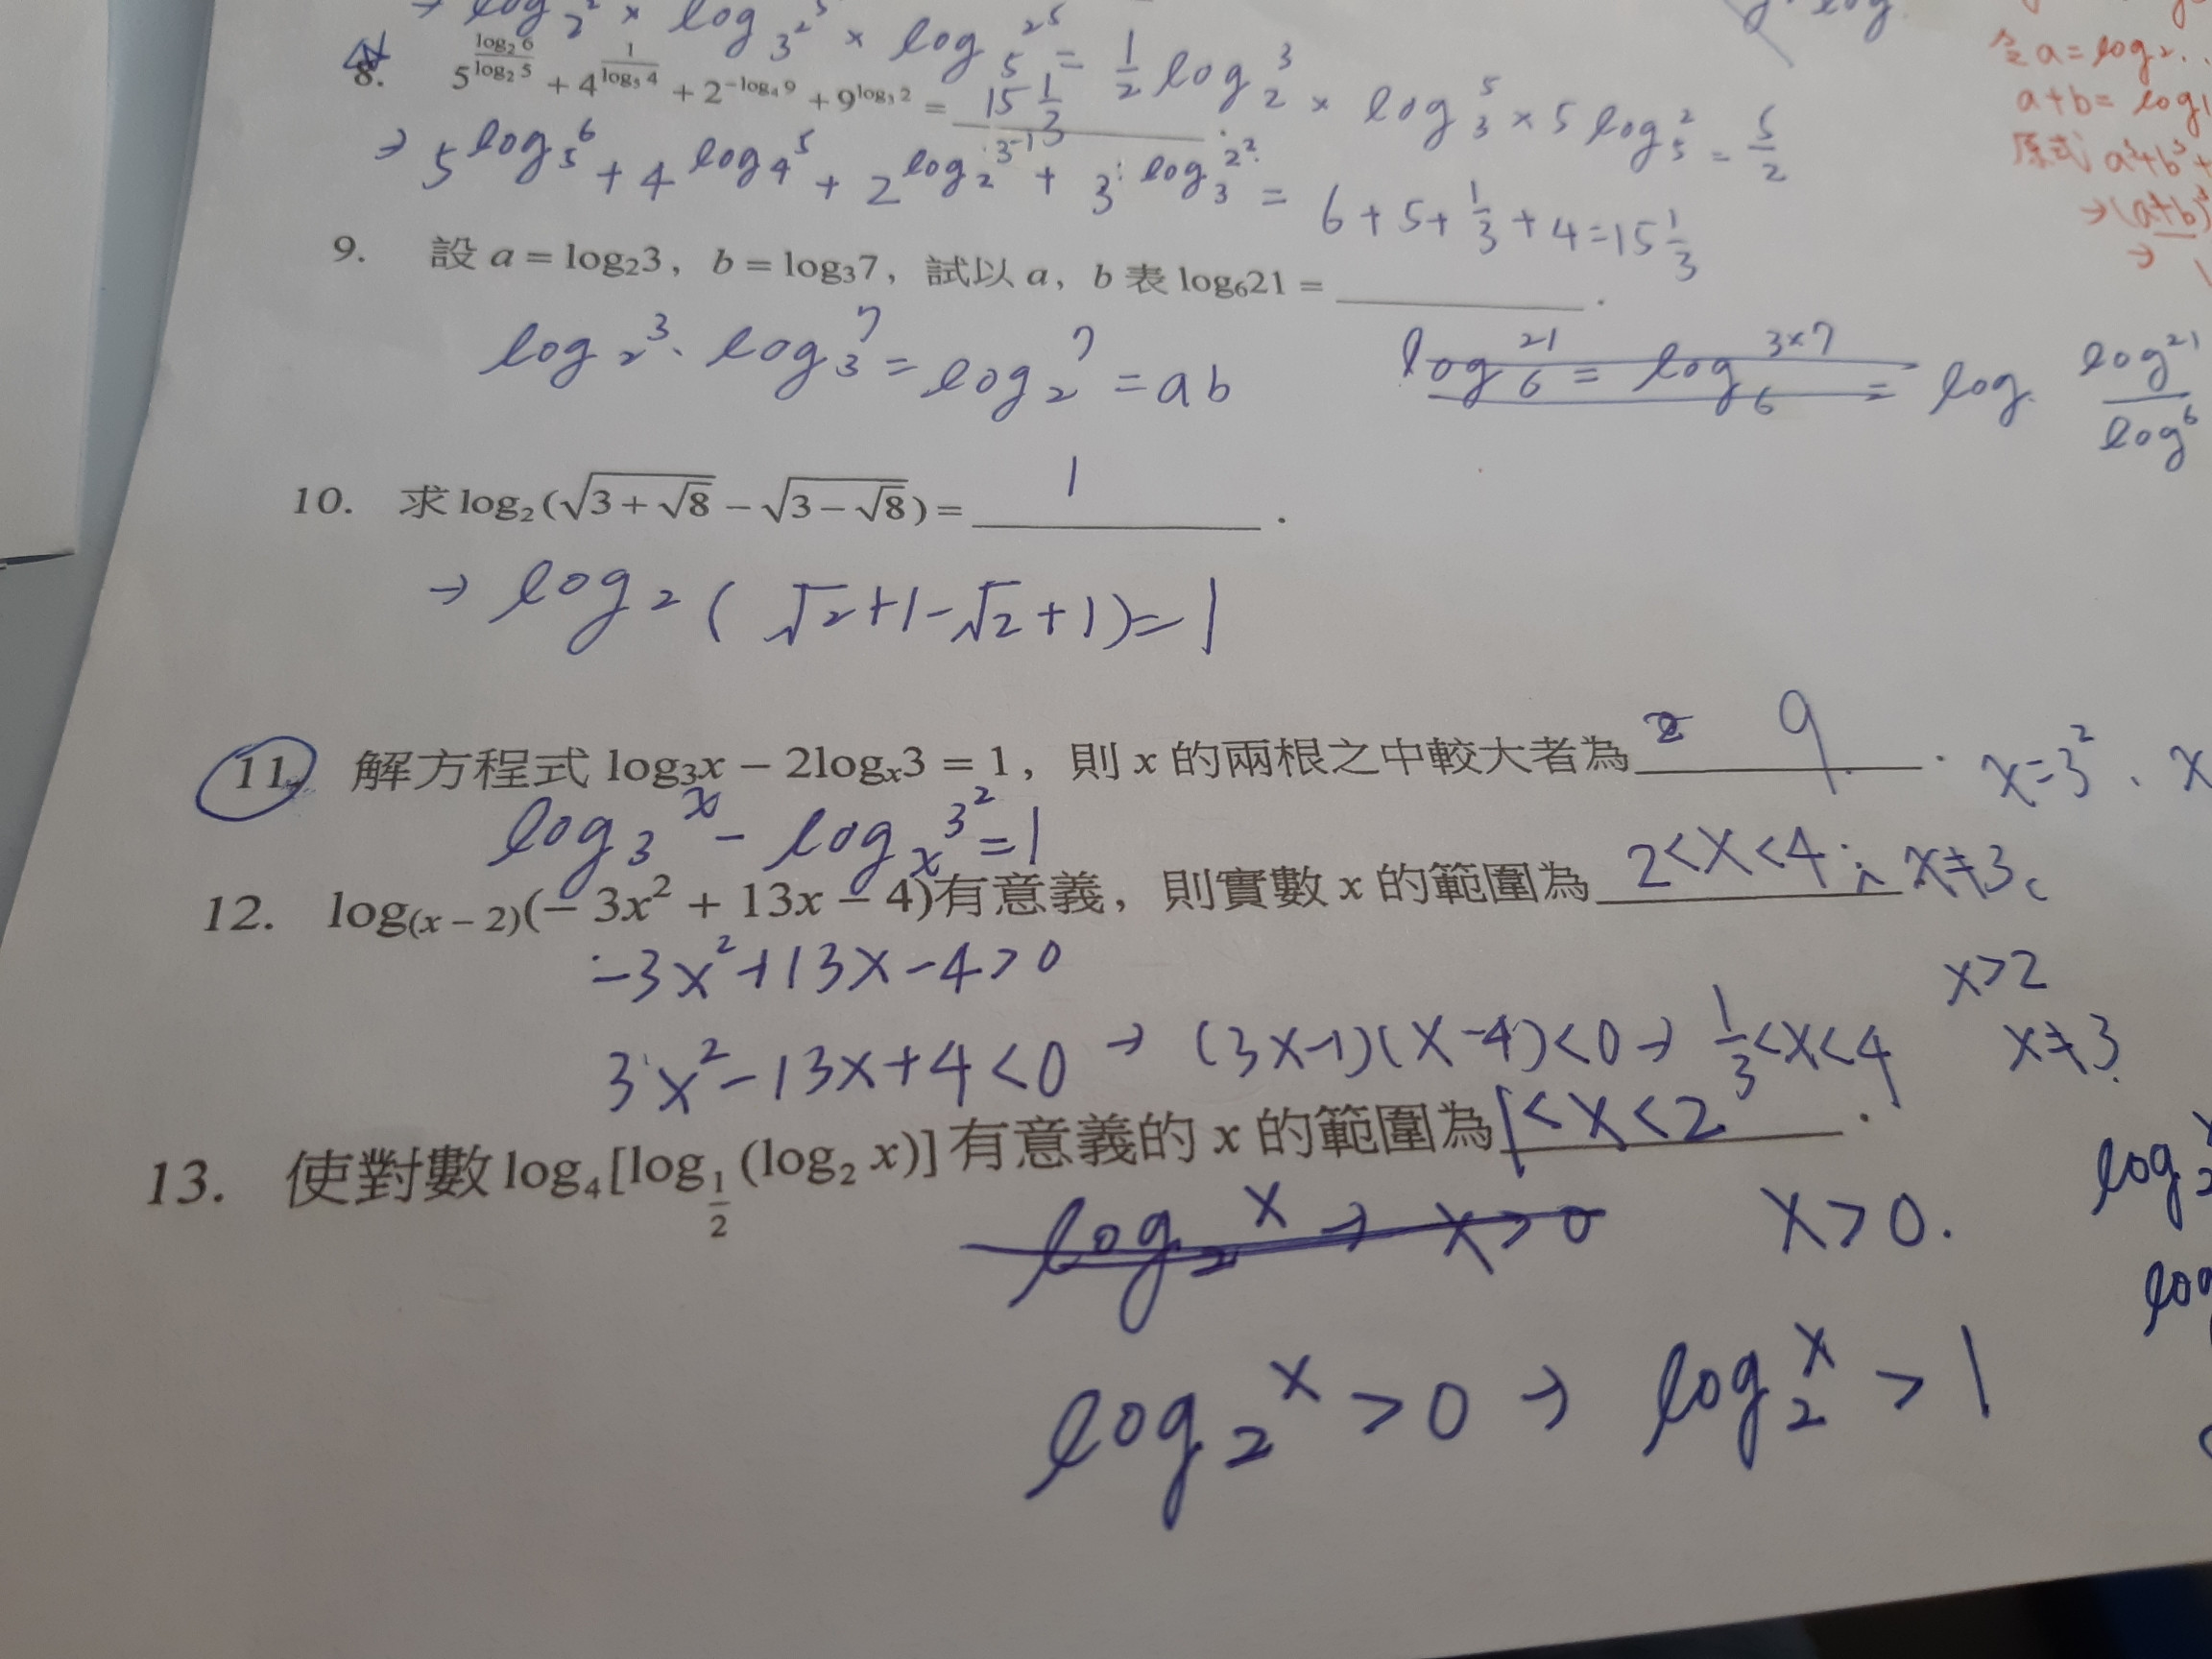 → log 2² × log 3² ⁵ × log 5 2⁵ = 1/2 log 2 3 × log 3 5 × 5 log 5 2 = 5/2
8. 5^(log₂6/log₂5) + 4^(1/log₅4) + 2^(−log₄9) + 9^(log₃2) = 15 1/3
→ 5 log 5 6 + 4 log 4 5 + 2 log 2 3⁻¹ + 3 log 3 2² = 6 + 5 + 1/3 + 4 = 15 1/3
令 a = log 2
a + b = log
原式 a³+b³+
→ (a+b)³
→
9. 設 a = log₂3, b = log₃7, 試以 a, b 表 log₆21 = .
log 2 3 · log 3 7 = log 2 7 = ab
log 6 21 = log 6 3×7 = log log 21 / log 6
10. 求 log₂(√(3 + √8) − √(3 − √8)) = 1 .
→ log 2 ( √2 + 1 − √2 + 1 ) = 1
11. 解方程式 log₃x − 2logₓ3 = 1, 則 x 的兩根之中較大者為 9 . x = 3² 、 x
log 3 x − log x 3² = 1
12. log₍ₓ₋₂₎(− 3x² + 13x − 4)有意義, 則實數 x 的範圍為 2<x<4 ; x≠3
−3x² + 13x − 4 > 0 x>2
3x² − 13x + 4 < 0 → (3x−1)(x−4)<0 → 1/3 < x < 4 x≠3
13. 使對數 log₄[log_(1/2) (log₂ x)] 有意義的 x 的範圍為 1<x<2 .
log 2 x → x>0 x>0. log 2
log
log 2 x > 0 → log 2 x > 1